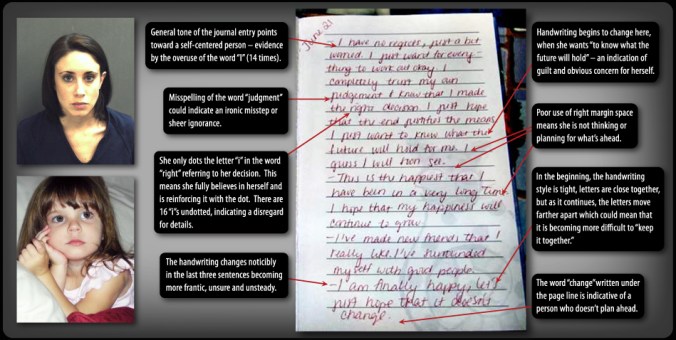 General tone of the journal entry points
toward a self-centered person – evidence
by the overuse of the word "I" (14 times).
Misspelling of the word "judgment"
could indicate an ironic misstep or
sheer ignorance.
She only dots the letter "i" in the word
"right" referring to her decision. This
means she fully believes in herself and
is reinforcing it with the dot. There are
16 "i"s undotted, indicating a disregard
for details.
The handwriting changes noticibly
in the last three sentences becoming
more frantic, unsure and unsteady.
June 21
I have no regrets, just a bit
worried. I just want for every-
thing to work out okay. I
completely trust my own
judgement & know that I made
the right decision. I just hope
that the end justifies the means.
I just want to know what the
future will hold for me. I
guess I will soon see.
-This is the happiest that I
have been in a very long time.
I hope that my happiness will
continue to grow.
-I've made new friends that I
really like. I've surrounded
myself with good people.
-I am finally happy, let's
just hope that it doesn't
change.
Handwriting begins to change here,
when she wants "to know what the
future will hold" – an indication of
guilt and obvious concern for herself.
Poor use of right margin space
means she is not thinking or
planning for what's ahead.
In the beginning, the handwriting
style is tight, letters are close together,
but as it continues, the letters move
farther apart which could mean that
it is becoming more difficult to "keep
it together."
The word "change" written under
the page line is indicative of a
person who doesn't plan ahead.